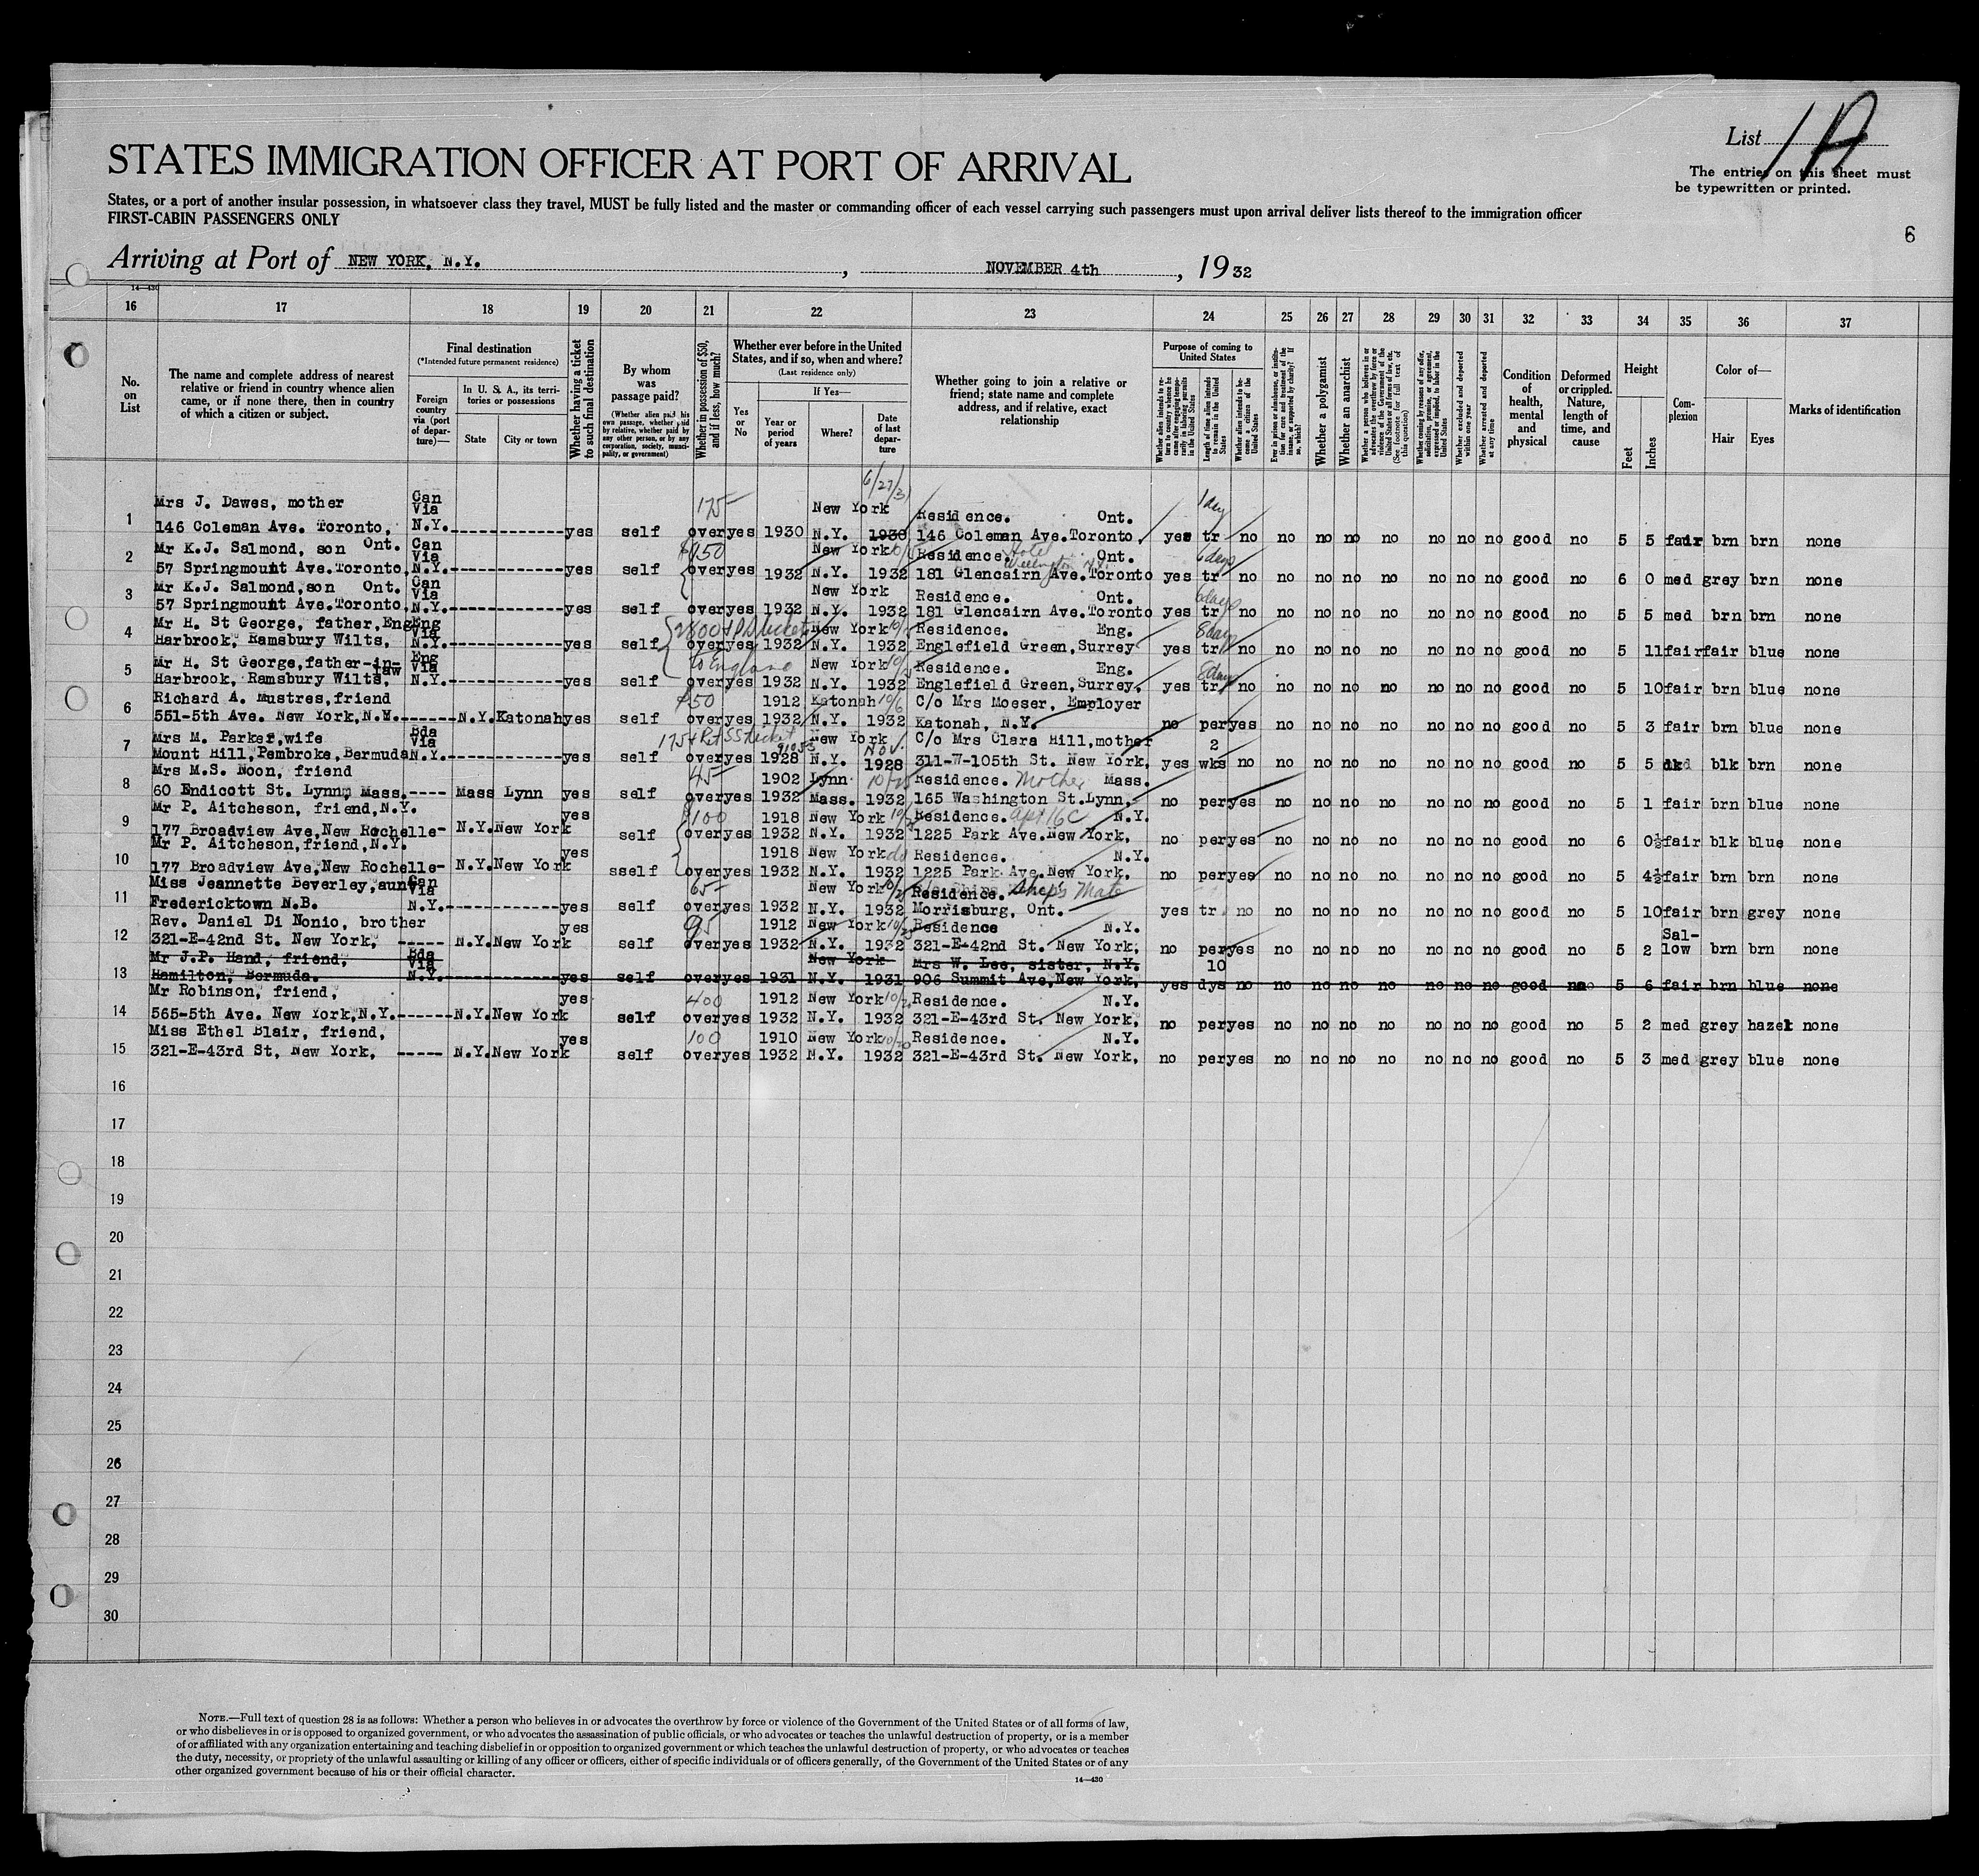 List 1A
The entries on this sheet must
be typewritten or printed.
STATES IMMIGRATION OFFICER AT PORT OF ARRIVAL
States, or a port of another insular possession, in whatsoever class they travel, MUST be fully listed and the master or commanding officer of each vessel carrying such passengers must upon arrival deliver lists thereof to the immigration officer
FIRST-CABIN PASSENGERS ONLY
6
Arriving at Port of NEW YORK, N.Y., NOVEMBER 4th, 1932
14-430
16 17 18 19 20 21 22 23 24 25 26 27 28 29 30 31 32 33 34 35 36 37
No. on List
The name and complete address of nearest relative or friend in country whence alien came, or if none there, then in country of which a citizen or subject.
Final destination
(*Intended future permanent residence)
Foreign country via (port of departure)—
In U. S. A., its territories or possessions
State
City or town
Whether having a ticket to such final destination
By whom was passage paid?
(Whether alien paid his own passage, whether paid by relative, whether paid by any other person, or by any corporation, society, municipality, or government)
Whether in possession of $50, and if less, how much?
Whether ever before in the United States, and if so, when and where?
(Last residence only)
Yes or No
If Yes—
Year or period of years
Where?
Date of last departure
Whether going to join a relative or friend; state name and complete address, and if relative, exact relationship
Purpose of coming to United States
Length of time alien intends to remain in the United States
Whether alien intends to become a citizen of the United States
Whether a polygamist
Whether an anarchist
Whether excluded and deported within one year
Whether arrested and deported at any time
Condition of health, mental and physical
Deformed or crippled. Nature, length of time, and cause
Height
Feet
Inches
Complexion
Color of—
Hair
Eyes
Marks of identification
6/27/31
Mrs J. Dawes, mother Can Via 175- New York Residence. Ont. 1 day
1 146 Coleman Ave. Toronto, Ont. N.Y. yes self over yes 1930 N.Y. 1930 146 Coleman Ave.Toronto, yes tr no no no no no no no no good no 5 5 fair brn brn none
Mr K.J. Salmond, son Can Via New York Residence. Hotel Wellington N.Y. Ont. 6 days
2 57 Springmount Ave.Toronto, N.Y. yes self over yes 1932 N.Y. 1932 181 Glencairn Ave.Toronto yes tr no no no no no no no no good no 6 0 med grey brn none
Mr K.J. Salmond,son Ont. Can Via New York Residence. Ont. 6 days
3 57 Springmount Ave.Toronto, N.Y. yes self over yes 1932 N.Y. 1932 181 Glencairn Ave.Toronto yes tr no no no no no no no no good no 5 5 med brn brn none
Mr H. St George, father,Eng Eng Via New York Residence. Eng. 8 days
4 Harbrook, Ramsbury Wilts, N.Y. yes self over yes 1932 N.Y. 1932 Englefield Green,Surrey yes tr no no no no no no no no good no 5 11 fair fair blue none
Mr H. St George,father-in-law Eng Via to England New York Residence. Eng. 8 days
5 Harbrook, Ramsbury Wilts, N.Y. yes self over yes 1932 N.Y. 1932 Englefield Green,Surrey, yes tr no no no no no no no no good no 5 10 fair brn blue none
Richard A. Mustres,friend 1912 Katonah 10/6 C/o Mrs Moeser, Employer
6 551-5th Ave. New York,N.Y. N.Y. Katonah yes self over yes 1932 N.Y. 1932 Katonah, N.Y. no per yes no no no no no no no good no 5 3 fair brn blue none
Mrs M. Parker,wife Bda Via New York Nov. C/o Mrs Clara Hill,mother 2
7 Mount Hill,Pembroke,Bermuda N.Y. yes self over yes 1928 N.Y. 1928 311-W-105th St. New York, yes wks no no no no no no no no good no 5 5 dkd blk brn none
Mrs M.S. Noon, friend 45- 1902 Lynn Residence. Mother Mass.
8 60 Endicott St. Lynn, Mass. Mass Lynn yes self over yes 1932 Mass. 1932 165 Washington St.Lynn, no per yes no no no no no no no good no 5 1 fair brn blue none
Mr P. Aitcheson, friend,N.Y. yes 100 1918 New York Residence. Apt 16C N.Y.
9 177 Broadview Ave,New Rochelle- N.Y. New York self over yes 1932 N.Y. 1932 1225 Park Ave.New York, no per yes no no no no no no no good no 6 0½ fair blk blue none
Mr P. Aitcheson,friend,N.Y. yes 1918 New York do Residence. N.Y.
10 177 Broadview Ave,New Rochelle- N.Y. New York sself over yes 1932 N.Y. 1932 1225 Park Ave.New York, no per yes no no no no no no no good no 5 4½ fair brn brn none
Miss Jeannette Beverley,aunt Can Via 65- New York Residence. Ship's Mate
11 Fredericktown N.B. N.Y. yes self over yes 1932 N.Y. 1932 Morrisburg, Ont. yes tr no no no no no no no no good no 5 10 fair brn grey none
Rev. Daniel Di Nonio, brother yes 1912 New York Residence N.Y.
12 321-E-42nd St. New York, N.Y. New York self over yes 1932 N.Y. 1932 321-E-42nd St. New York, no per yes no no no no no no no good no 5 2 Sallow brn brn none
Mr J.P. Hand, friend, Bda Via New York Mrs W. Lee, sister, N.Y. 10
13 Hamilton, Bermuda. N.Y. yes self over yes 1931 N.Y. 1931 906 Summit Ave,New York, yes dys no no no no no no no no good no 5 6 fair brn blue none
Mr Robinson, friend, yes 400 1912 New York Residence. N.Y.
14 565-5th Ave. New York,N.Y. N.Y. New York self over yes 1932 N.Y. 1932 321-E-43rd St. New York, no per yes no no no no no no no good no 5 2 med grey hazel none
Miss Ethel Blair, friend, yes 100 1910 New York 10/20 Residence. N.Y.
15 321-E-43rd St, New York, N.Y. New York self over yes 1932 N.Y. 1932 321-E-43rd St. New York, no per yes no no no no no no no good no 5 3 med grey blue none
16
17
18
19
20
21
22
23
24
25
26
27
28
29
30
NOTE.—Full text of question 28 is as follows: Whether a person who believes in or advocates the overthrow by force or violence of the Government of the United States or of all forms of law,
or who disbelieves in or is opposed to organized government, or who advocates the assassination of public officials, or who advocates or teaches the unlawful destruction of property, or is a member
of or affiliated with any organization entertaining and teaching disbelief in or opposition to organized government or which teaches the unlawful destruction of property, or who advocates or teaches
the duty, necessity, or propriety of the unlawful assaulting or killing of any officer or officers, either of specific individuals or of officers generally, of the Government of the United States or of any
other organized government because of his or their official character.
14-430